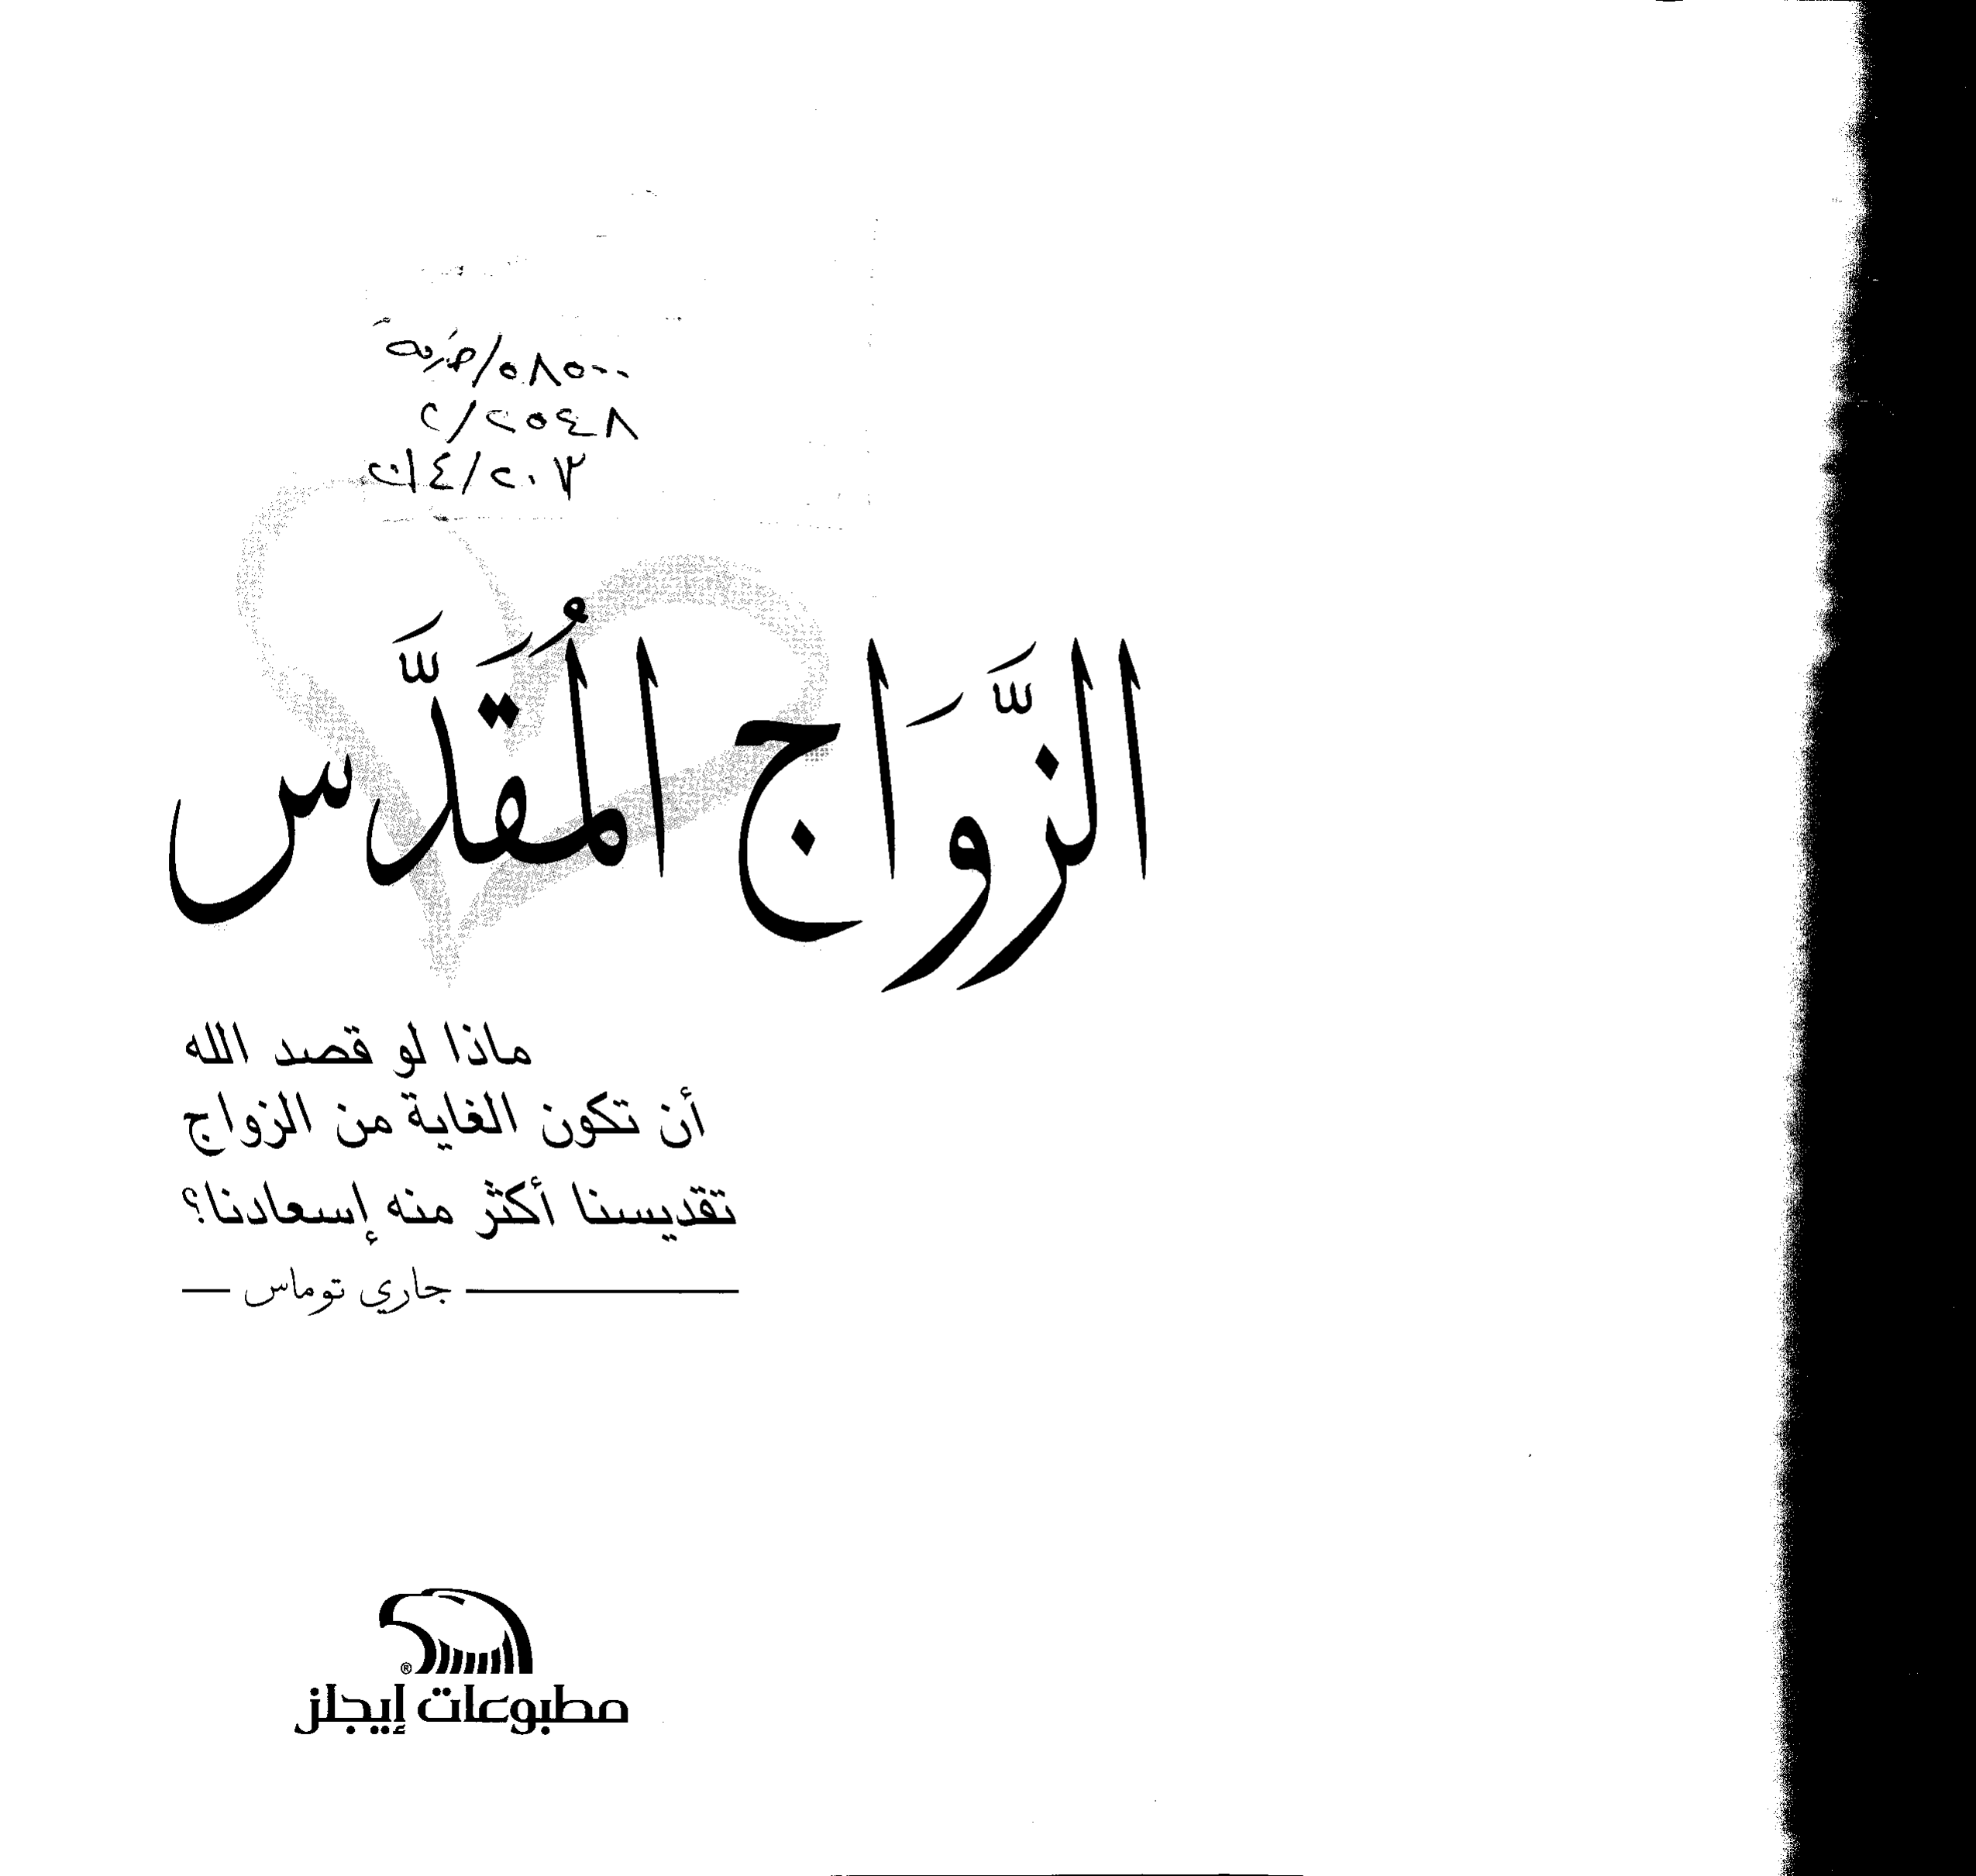 ٠٨٥٠٠/
٢/٢٥٤٨
٤/٢٠١٣
الزَّوَاج المُقَدَّس
ماذا لو قصد الله
أن تكون الغاية من الزواج
تقديسنا أكثر منه إسعادنا؟
جاري توماس
®
مطبوعات إيجلز